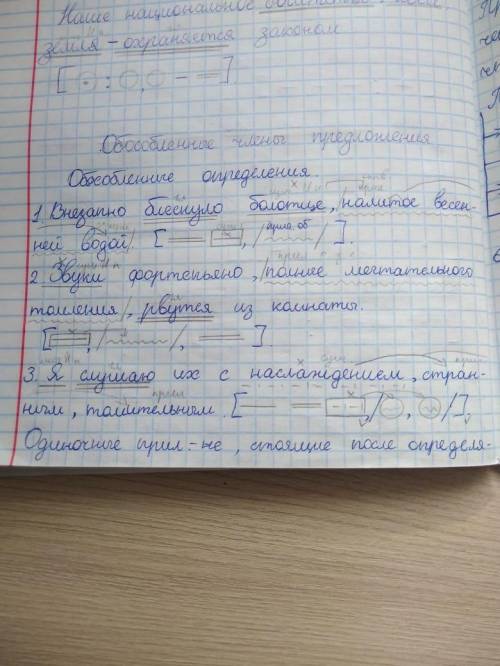 Наше национальное богатство: вода,
земля – охраняется законом
[ : , – ]
Обособленные члены предложения
Обособленные определения.
1. Внезапно блеснуло болотце, налитое весен-
ней водой. [ , / прич. об / ].
2. Звуки фортепьяно, полные мечтательного
томления, рвутся из комнаты.
[ , / / , ].
3. Я слушаю их с наслаждением, стран-
ным, томительным. [ , / , / ].
Одиночные прил-не, стоящие после определя-